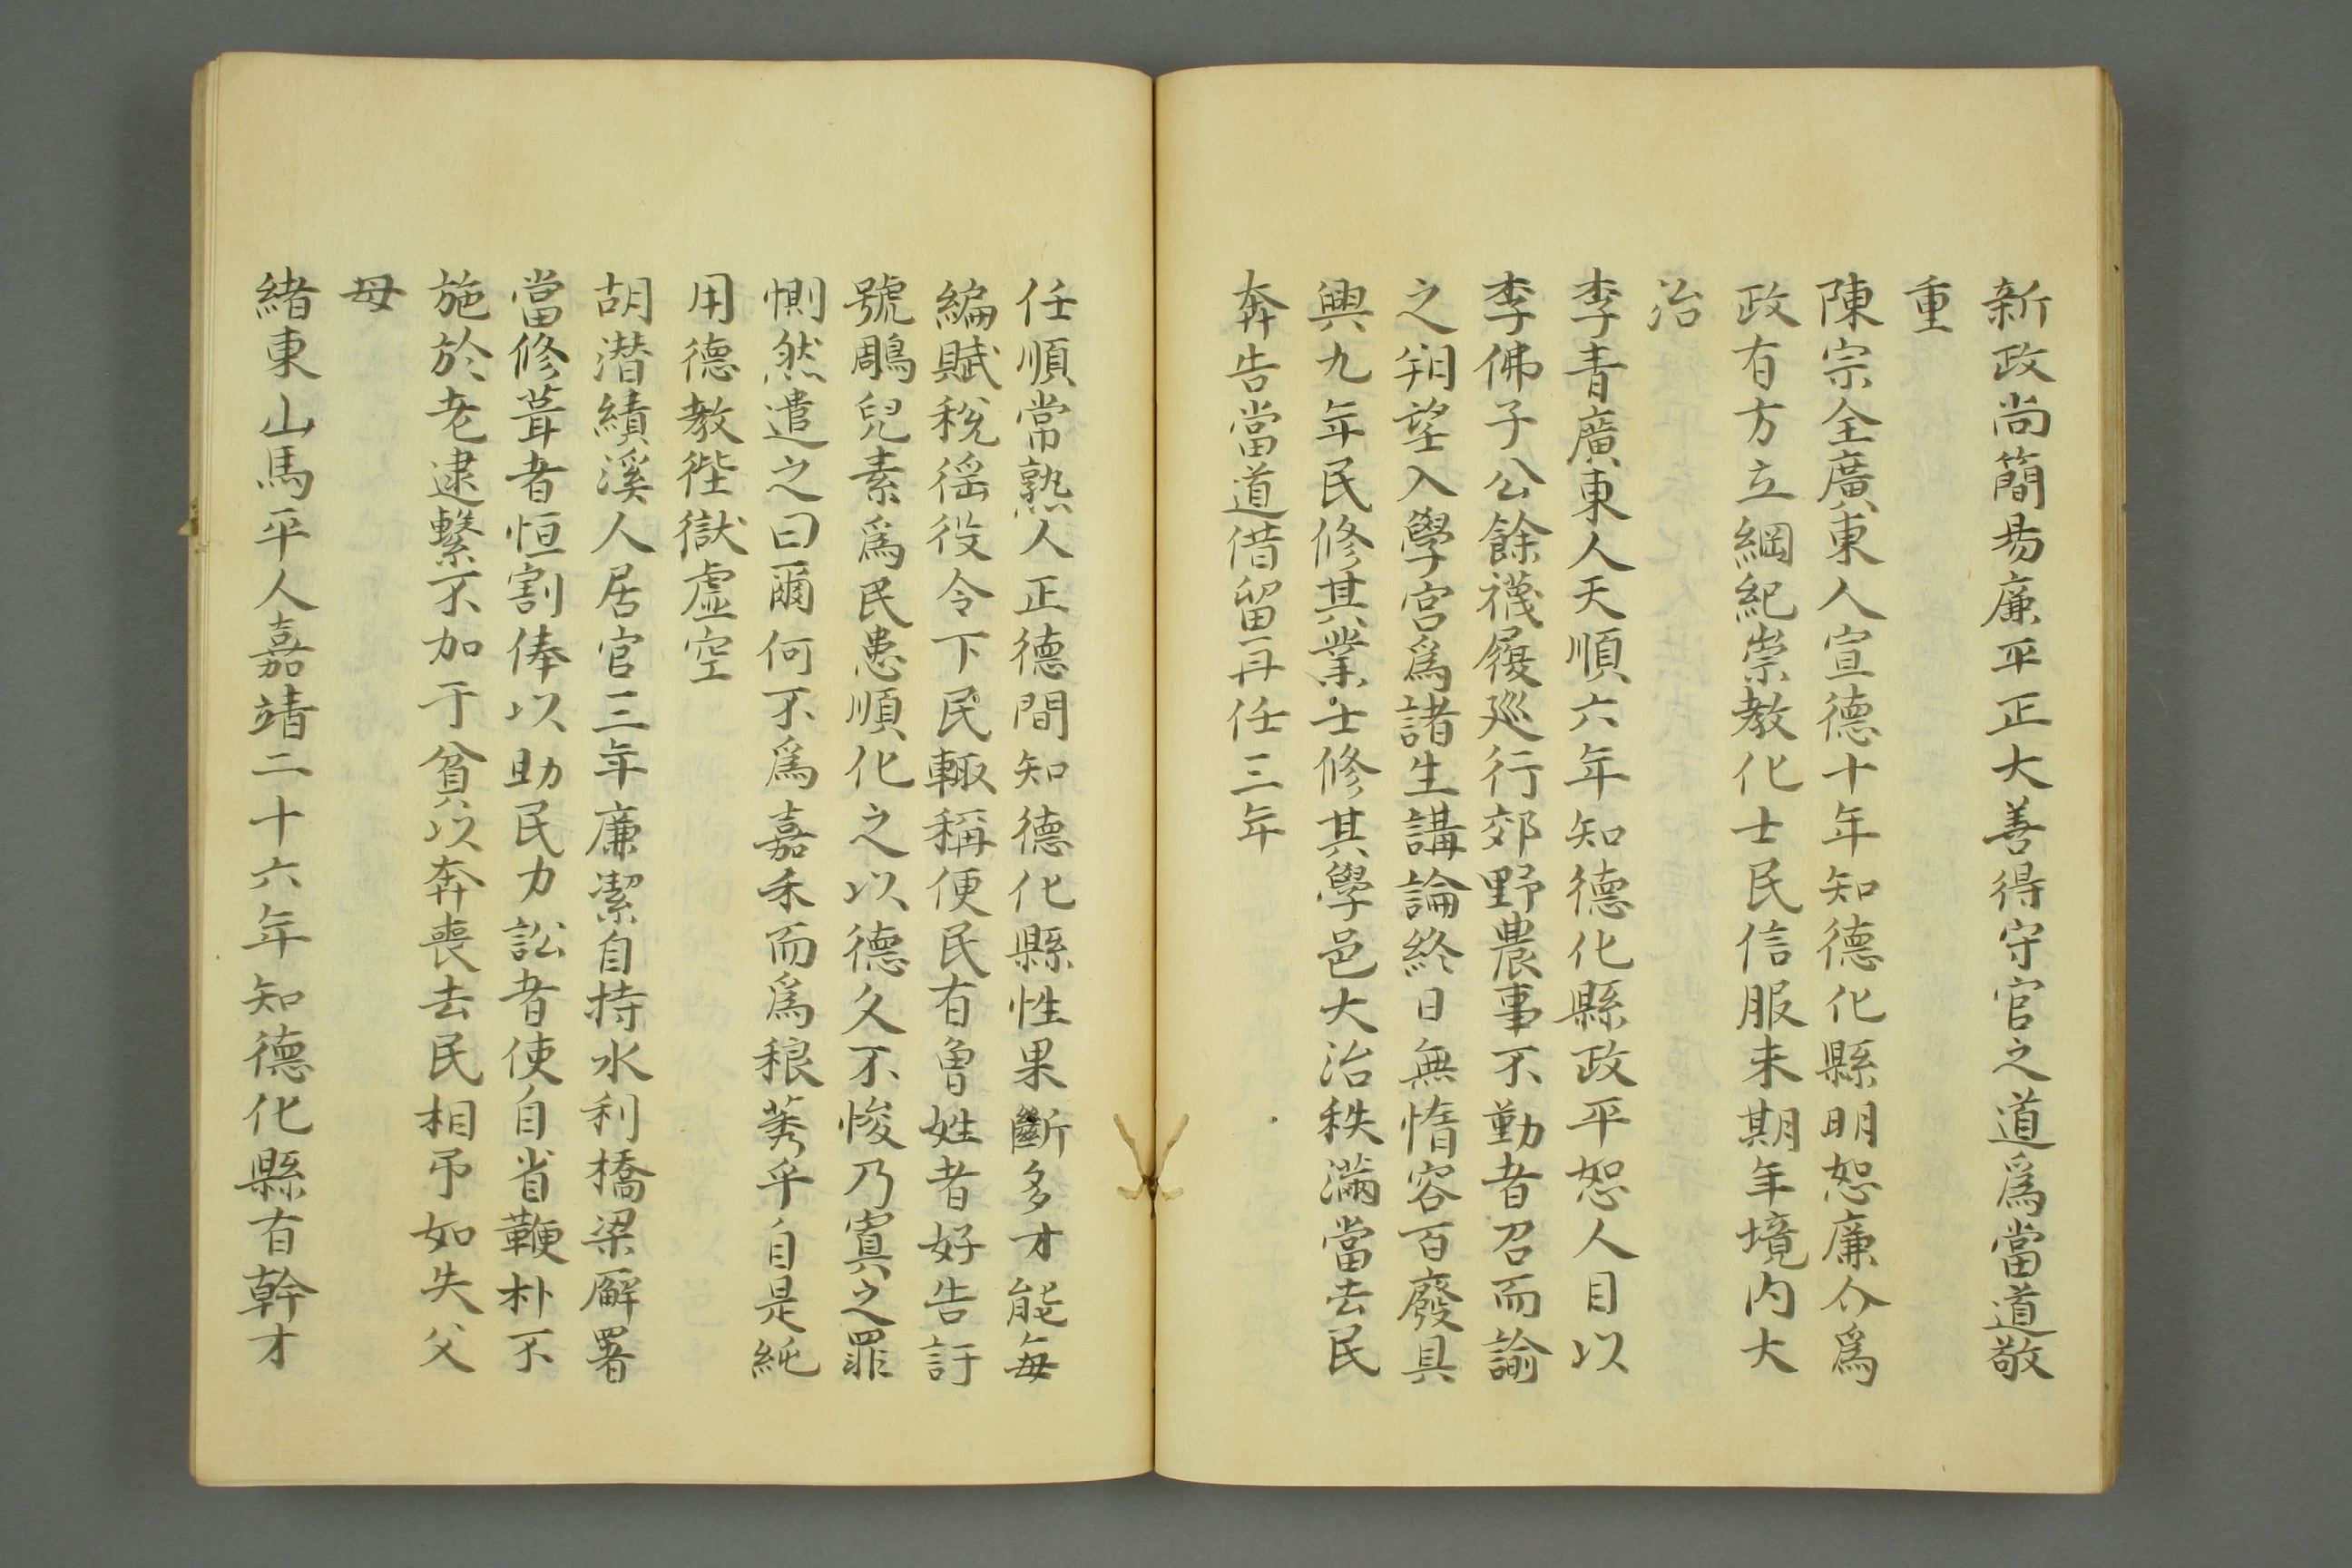 新政尚簡易廉平正大善得守官之道爲當道敬
重
陳宗全廣東人宣德十年知德化縣明恕廉介爲
政有方立綱紀崇教化士民信服未期年境内大
治
李青廣東人天順六年知德化縣政平恕人目以
李佛子公餘襪履廵行郊野農事不勤者召而諭
之朔望入學宫爲諸生講論終日無惰容百廢具
興九年民修其業士修其學邑大治秩滿當去民
奔告當道借留再任三年
任順常熟人正德間知德化縣性果斷多才能每
編賦稅徭役令下民輙稱便民有魯姓者好告訐
號鵰兒素爲民患順化之以德久不悛乃寘之罪
惻然遣之曰爾何不爲嘉禾而爲稂莠乎自是純
用德教徃獄虛空
胡潜績溪人居官三年廉潔自持水利橋梁廨署
當修葺者恒割俸以助民力訟者使自省鞭朴不
施於老逮繫不加于貧以奔喪去民相弔如失父
母
緒東山馬平人嘉靖二十六年知德化縣有幹才